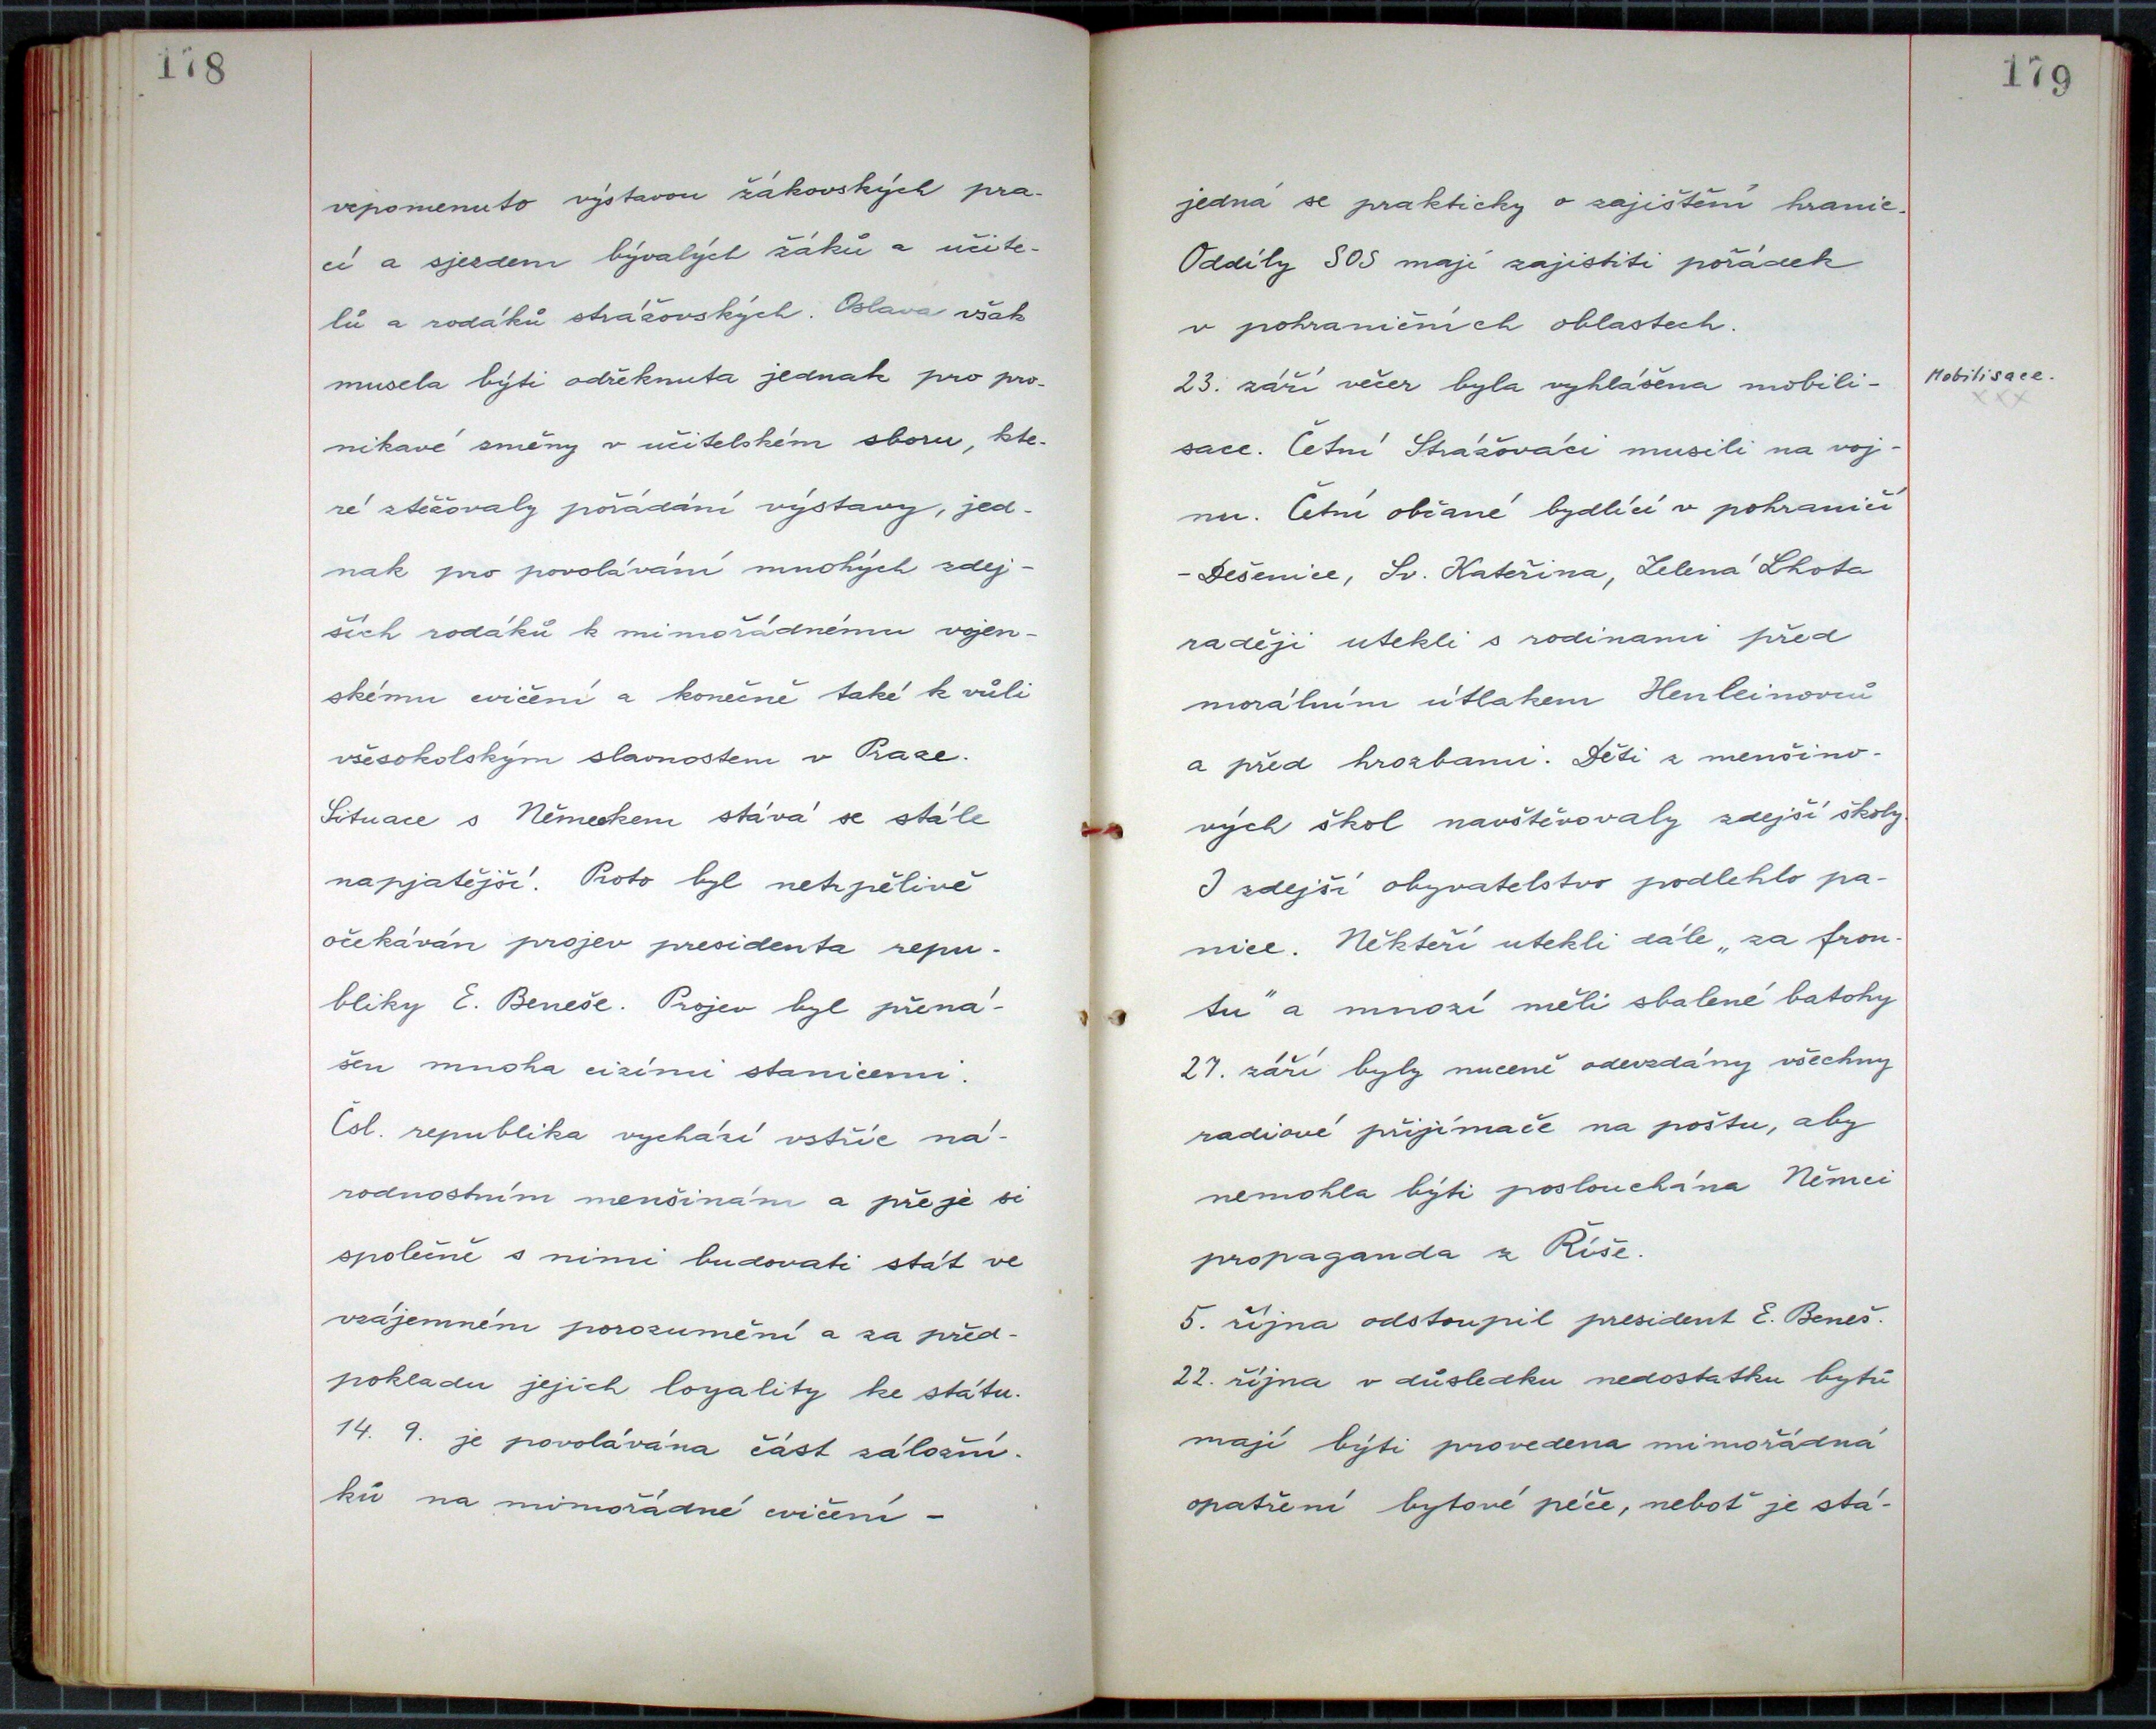 178
vzpomenuto výstavou žákovských pra-
cí a sjezdem bývalých žáků a učite-
lů a rodáků strážovských. Oslava však
musela býti odřeknuta jednak pro pro-
nikavé změny v učitelském sboru, kte-
ré ztěžovaly pořádání výstavy, jed-
nak pro povolávání mnohých zdej-
ších rodáků k mimořádnému vojen-
skému cvičení a konečně také k vůli
všesokolským slavnostem v Praze.
Situace s Německem stává se stále
napjatější. Proto byl netrpělivě
očekáván projev presidenta repu-
bliky E. Beneše. Projev byl přená-
šen mnoha cizími stanicemi.
Čsl. republika vychází vstříc ná-
rodnostním menšinám a přeje si
společně s nimi budovati stát ve
vzájemném porozumění a za před-
pokladu jejich loyality ke státu.
14. 9. je povolávána část záložní-
ků na mimořádné cvičení -
179
jedná se prakticky o zajištění hranic.
Oddíly SOS mají zajistiti pořádek
v pohraničních oblastech.
23. září večer byla vyhlášena mobili-
Mobilisace.
xxx
sace. Četní Strážováci musili na voj-
nu. Četní občané bydlící v pohraničí
- Dešenice, Sv. Kateřina, Zelená Lhota
raději utekli s rodinami před
morálním útlakem Henleinovců
a před hrozbami. Děti z menšino-
vých škol navštěvovaly zdejší školy.
I zdejší obyvatelstvo podlehlo pa-
nice. Někteří utekli dále „za fron-
tu" a mnozí měli sbalené batohy
27. září byly nuceně odevzdány všechny
radiové přijímače na poštu, aby
nemohla býti poslouchána Němci
propaganda z Říše.
5. října odstoupil president E. Beneš.
22. října v důsledku nedostatku bytů
mají býti provedena mimořádná
opatření bytové péče, neboť je stá-